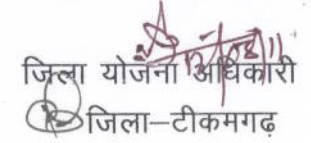 जिला योजना अधिकारी
जिला–टीकमगढ़